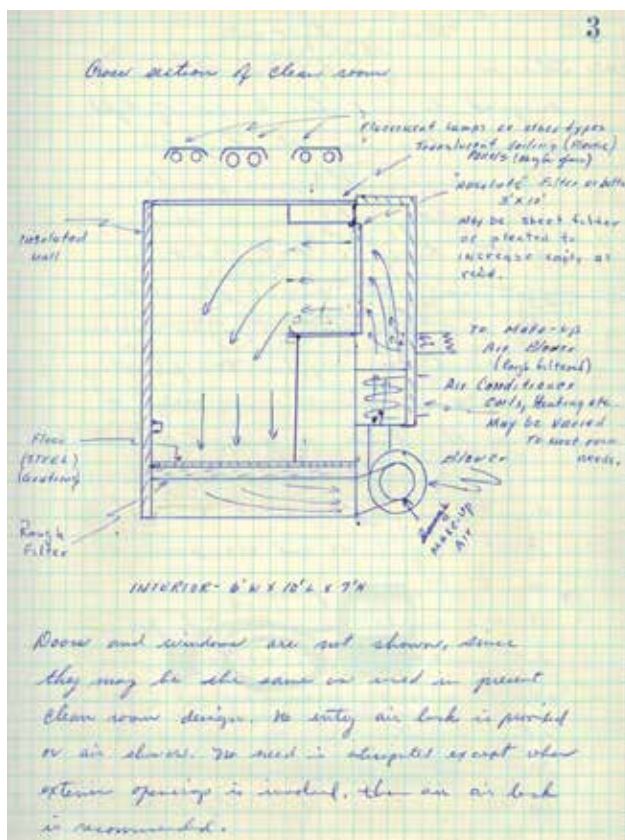 3
Cross section of clean room
Fluorescent lamps or other types
Translucent ceiling (Plastic)
Panels
"Absolute" Filter
3' x 10'
May be sheet filter
or pleated to
increase as
req'd.
Insulated
wall
To Make-up
Air Blower
(Rough filtered)
Air Conditioner
Coils, Heating etc.
May be varied
To meet
needs.
Floor
(STEEL)
(Grating)
Blower
Rough
Filter
Make-up
Air
INTERIOR - 6'W x 10'L x 7'H
Doors and windows are not shown, since
they may be the same as used in present
clean room design. No entry air lock is provided
or air shower. No need is except when
exterior openings is involved, then an air lock
is recommended.